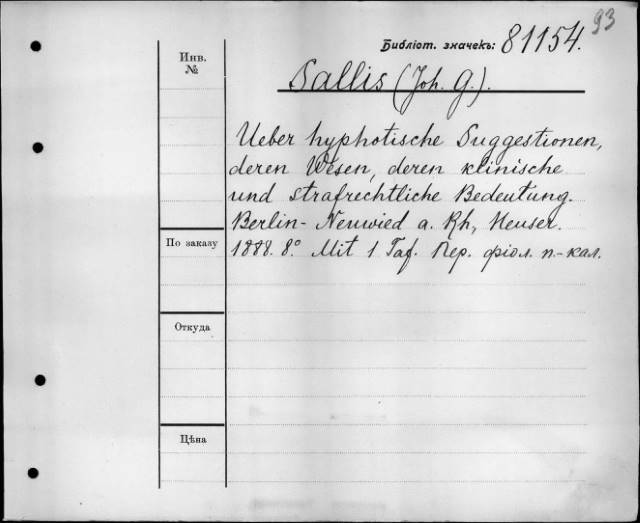 93
Библіот. значекъ: 81154.
Инв.
№
Sallis (Joh. G.).
Ueber hyphotische Suggestionen,
deren Wesen, deren klinische
und strafrechtliche Bedeutung.
Berlin-Neuwied a. Rh, Heuser.
По заказу
1888. 8° Mit 1 Taf. Пер. фіол. п.-кал.
Откуда
Цѣна